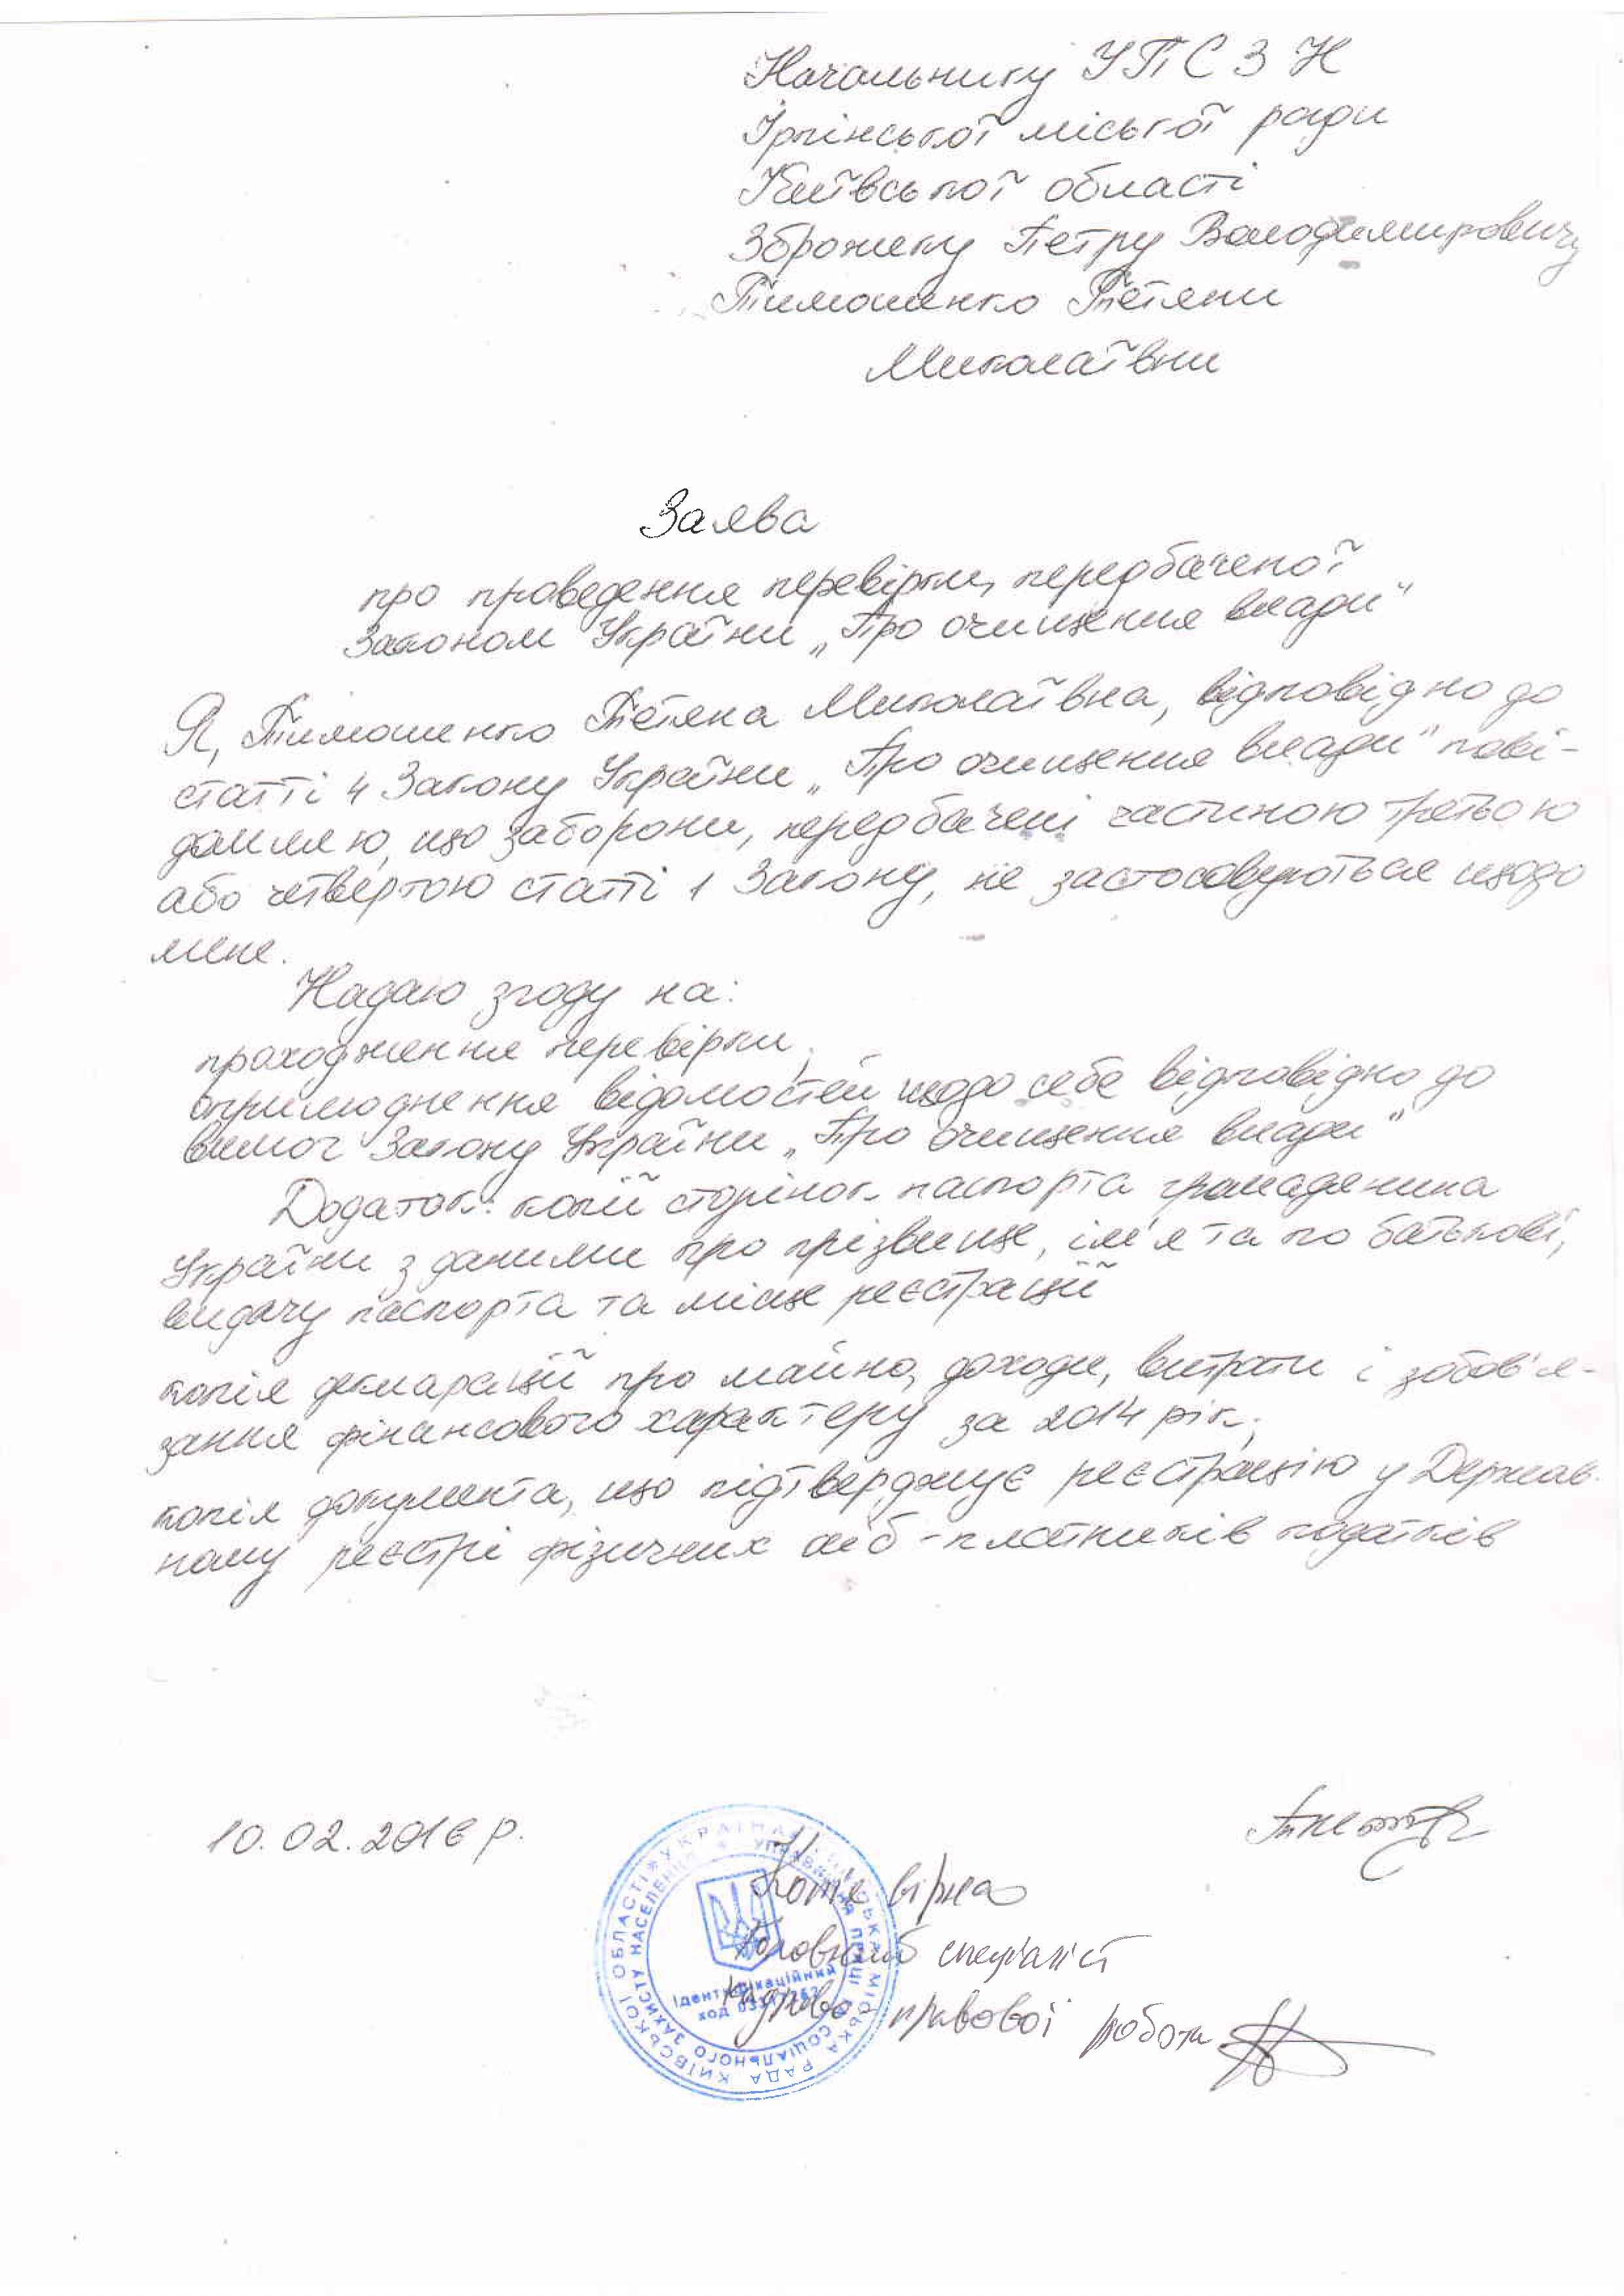 Начальнику УПСЗН
Ірпінської міської ради
Київської області
Зброжеку Петру Володимировичу
Тимошенко Тетяни
Миколаївни
Заява
про проведення перевірки, передбаченої
Законом України „Про очищення влади“
Я, Тимошенко Тетяна Миколаївна, відповідно до
статті 4 Закону України „Про очищення влади“ пові-
домляю, що заборони, передбачені частиною третьою
або четвертою статті 1 Закону, не застосовуються щодо
мене.
Надаю згоду на:
проходження перевірки;
оприлюднення відомостей щодо себе відповідно до
вимог Закону України „Про очищення влади“
Додаток: копії сторінок паспорта громадянина
України з даними про прізвище, ім'я та по батькові,
видачу паспорта та місце реєстрації
копія декларації про майно, доходи, витрати і зобов'я-
зання фінансового характеру за 2014 рік;
копія документа, що підтверджує реєстрацію у Держав-
ному реєстрі фізичних осіб-платників податків
10.02.2016 р.
Копія вірна
Головний спеціаліст
кадрово-правової роботи
УКРАЇНА МІСЬКА РАДА КИЇВСЬКОЇ ОБЛАСТІ
УПРАВЛІННЯ ПРАЦІ СОЦІАЛЬНОГО ЗАХИСТУ НАСЕЛЕННЯ
Ідентифікаційний
код